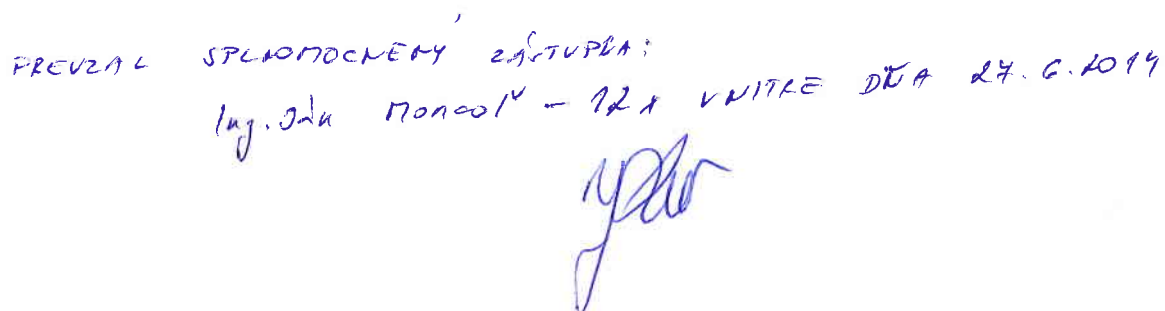 PREVZAL SPLNOMOCNENÝ ZÁSTUPCA:
Ing. Ján Moncoľ - 12x V NITRE DŇA 27.6.2014